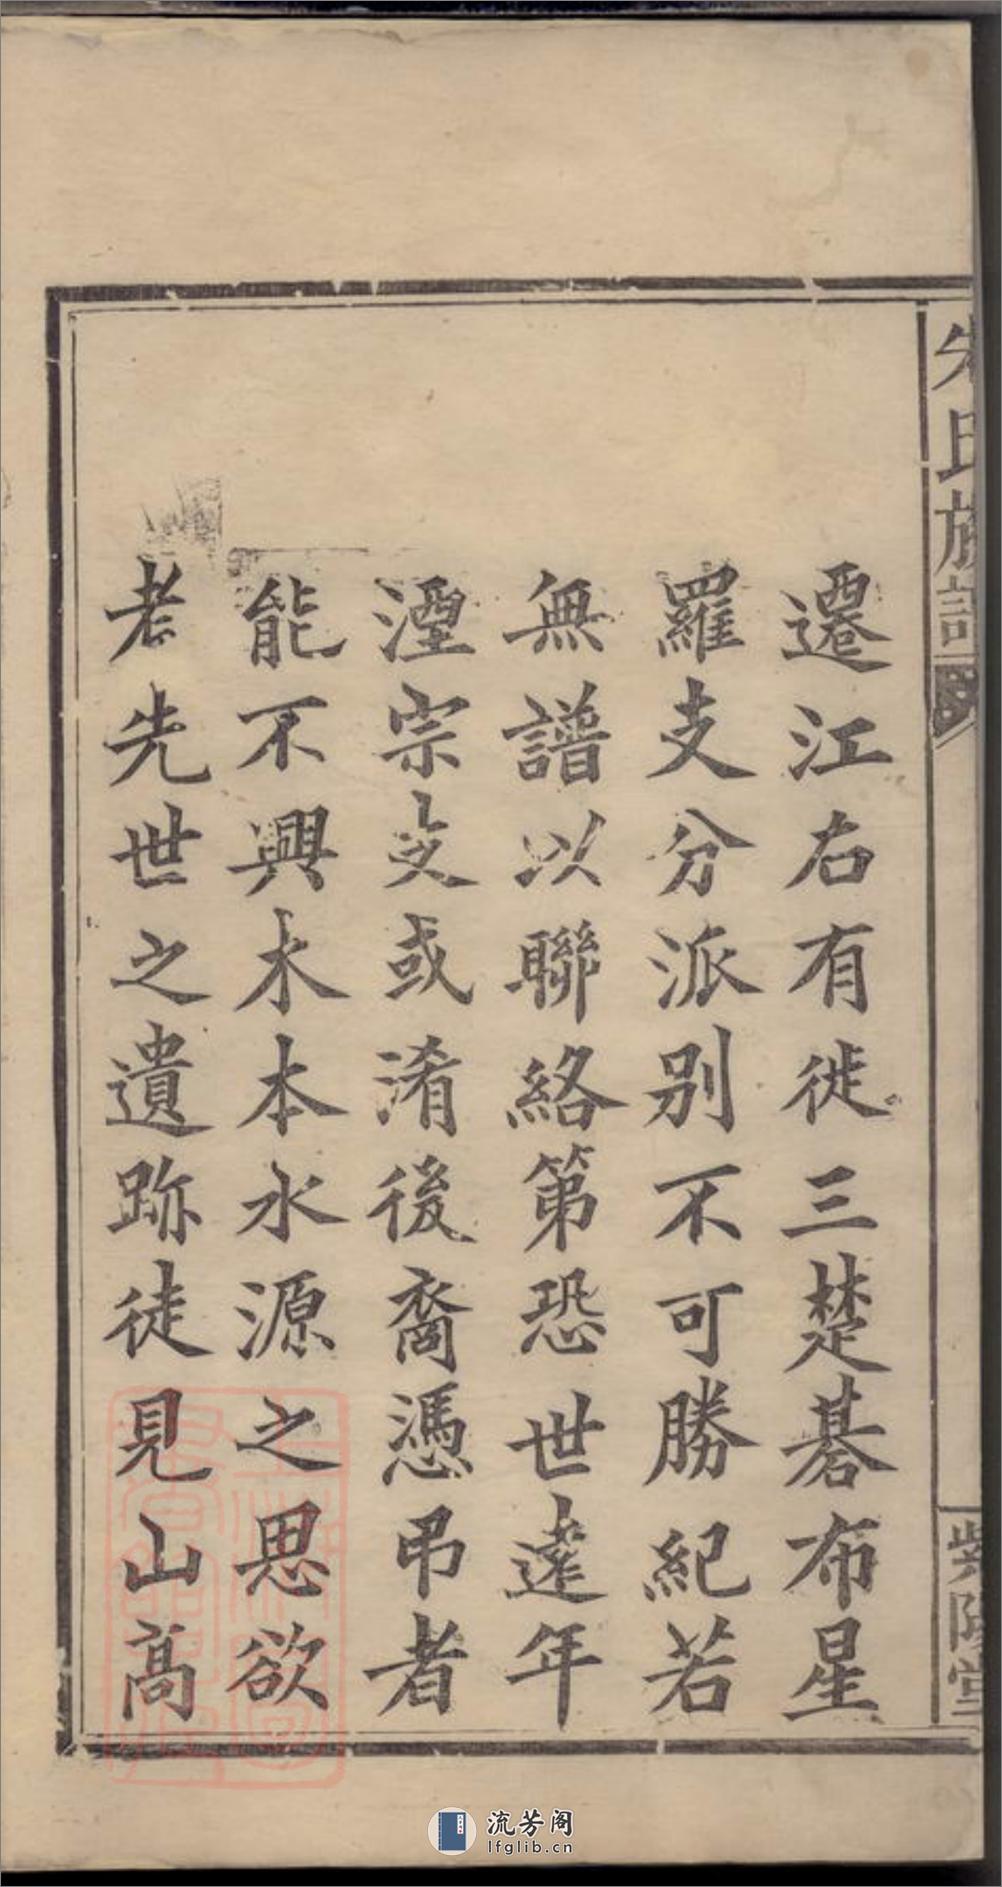 朱氏族譜
紫陽堂
遷江右有徙三楚碁布星
羅支分派别不可勝紀若
無譜以聯絡第恐世逺年
湮宗支或淆後裔憑弔者
能不興木本水源之思欲
老先世之遺跡徒見山高
流芳阁
lfglib.cn